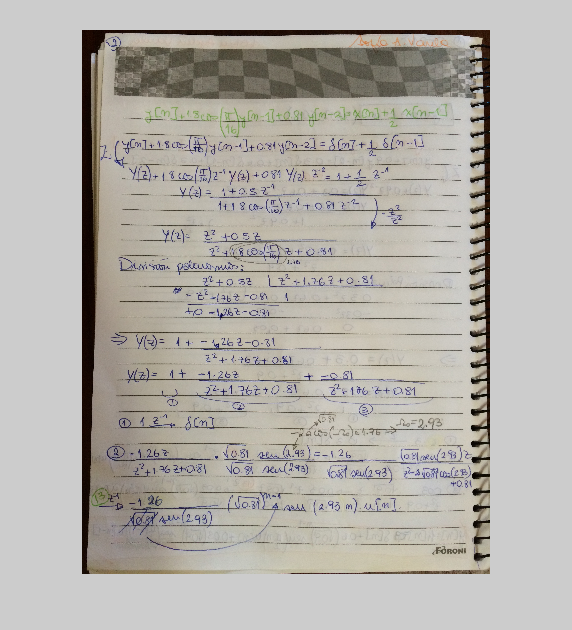 1
y[n]+1.8cos(π/16)y[n-1]+0.81y[n-2]=x[n]+1/2 x[n-1]
Z{ y[n]+1.8cos(π/16)y[n-1]+0.81y[n-2]=δ[n]+1/2 δ[n-1]
Y(z)+1.8cos(π/16)z^-1 Y(z)+0.81 Y(z) z^-2=1+1/2 z^-1
Y(z)= 1+0.5z^-1
1+1.8cos(π/16)z^-1+0.81z^-2
· z²/z²
Y(z)= z²+0.5z
z²+1.8cos(π/16)z+0.81
1.76
z²+0.5z | z²+1.76z+0.81
-z²-1.76z-0.81 1
+0-1.26z-0.81
⇒ Y(z)= 1+ -1.26z-0.81
z²+1.76z+0.81
Y(z)= 1+ -1.26z + -0.81
z²+1.76z+0.81 z²+1.76z+0.81
① ② ③
① 1 z^-1→ δ[n]
√0.81
-2cos(-Ω0)=1.76 → Ω0=2.93
② -1.26z · √0.81 sen(2.93)=-1.26 √0.81 sen(2.93)z
z²+1.76z+0.81 √0.81 sen(2.93) √0.81 sen(2.93) z²-2√0.81cos(2.93)z
+0.81
③ z^-1 -1.26 (√0.81)^n-1 sen(2.93n).u[n].
√0.81 sen(2.93)
FORONI